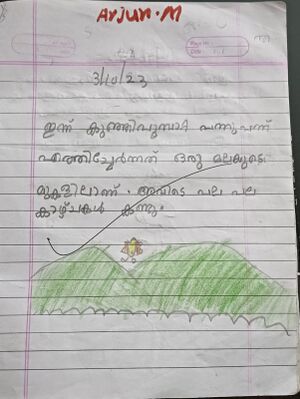 Arjun.M
3/10/23
ഇന്ന് കുഞ്ഞിപൂമ്പാറ്റ പറന്നു പറന്ന്
എത്തിച്ചേർന്നത് ഒരു മലയുടെ
മുകളിലാണ്. അവിടെ പല പല
കാഴ്ചകൾ കണ്ടു.